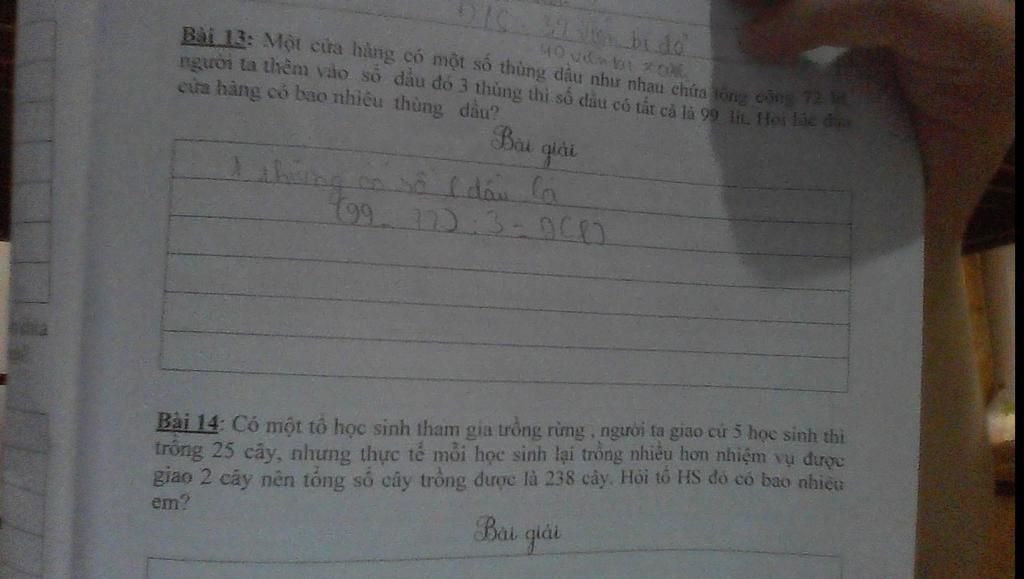 37 viên bi đỏ
40 viên bi xanh
Bài 13: Một cửa hàng có một số thùng dầu như nhau chứa tổng cộng 72 lít,
người ta thêm vào số dầu đó 3 thùng thì số dầu có tất cả là 99 lít. Hỏi lúc đầu
cửa hàng có bao nhiêu thùng dầu?
Bài giải
1 thùng có số l dầu là
(99 - 72) : 3 = 9 (l)
Bài 14: Có một tổ học sinh tham gia trồng rừng , người ta giao cứ 5 học sinh thì
trồng 25 cây, nhưng thực tế mỗi học sinh lại trồng nhiều hơn nhiệm vụ được
giao 2 cây nên tổng số cây trồng được là 238 cây. Hỏi tổ HS đó có bao nhiêu
em?
Bài giải